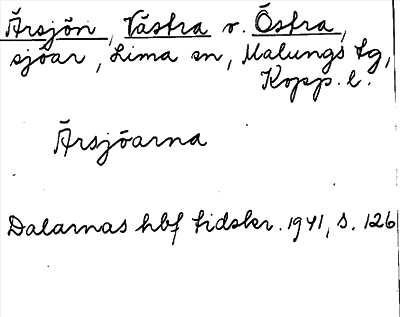 Ärsjön, Västra o. Östra,
sjöar, Lima sn, Malungs tg,
Kopp. l.
Ärsjöarna
Dalarnas hbf tidskr. 1941, s. 126